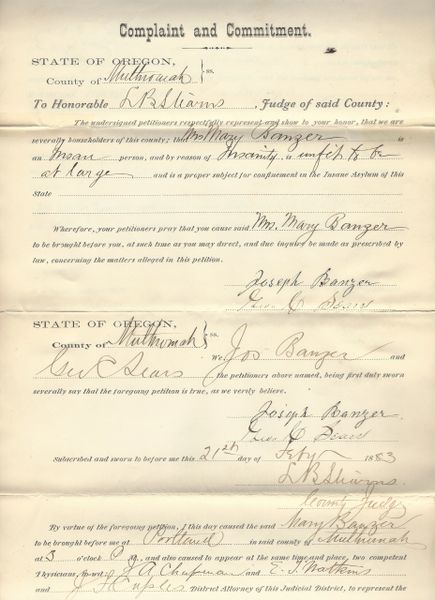 Complaint and Commitment.
STATE OF OREGON, } ss.
County of Multnomah
To Honorable L B Stearns, Judge of said County:
The undersigned petitioners respectfully represent and show to your honor, that we are
severally householders of this county; that Mrs Mary Banzer is
an Insane person, and by reason of Insanity is unfit to be
at large and is a proper subject for confinement in the Insane Asylum of this
State
Wherefore, your petitioners pray that you cause said Mrs. Mary Banzer
to be brought before you, at such time as you may direct, and due inquiry be made as prescribed by
law, concerning the matters alleged in this petition.
Joseph Banzer
Geo C Sears
STATE OF OREGON, } ss.
County of Multnomah
We Jos Banzer and
Geo C Sears the petitioners above named, being first duly sworn
severally say that the foregoing petition is true, as we verily believe.
Joseph Banzer
Geo C Sears
Subscribed and sworn to before me this 21st day of Feby 1883
L B Stearns
County Judge
By virtue of the foregoing petition, I this day caused the said Mary Banzer
to be brought before me at Portland in said county of Multnomah
at 3 o'clock P m., and also caused to appear at the same time and place, two competent
Physicians, to-wit: J A Chapman and E. J. Watkins
and J F Caples District Attorney of this Judicial District, to represent the